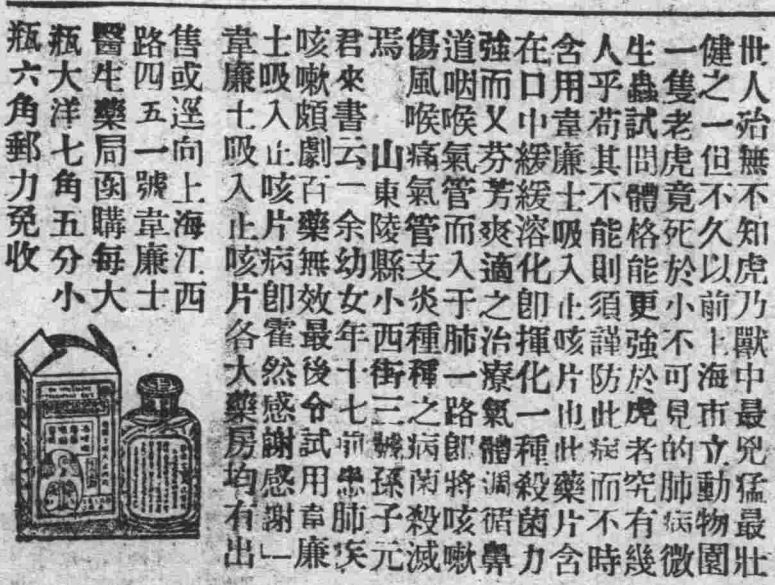 世人殆無不知虎乃獸中最兇猛最壯
健之一但不久以前上海市立動物園
一隻老虎竟死於小不可見的肺病微
生蟲試問體格能更強於虎者究有幾
人乎苟其不能則須謹防此病而不時
含用韋廉士吸入止咳片也此藥片含
在口中緩緩溶化卽揮化一種殺菌力
強而又芬芳爽適之治療氣體調循鼻
道咽喉氣管而入于肺一路卽將咳嗽
傷風喉痛氣管支炎種種之病菌殺滅
焉 山東陵縣小西街三號孫子元
君來書云一余幼女年十七前患肺疾
咳嗽頗劇百藥無效最後令試用韋廉
士吸入止咳片病卽霍然感謝感謝」
韋廉士吸入止咳片各大藥房均有出
售或逕向上海江西
路四五一號韋廉士
醫生藥局函購每大
瓶大洋七角五分小
瓶六角郵力免收